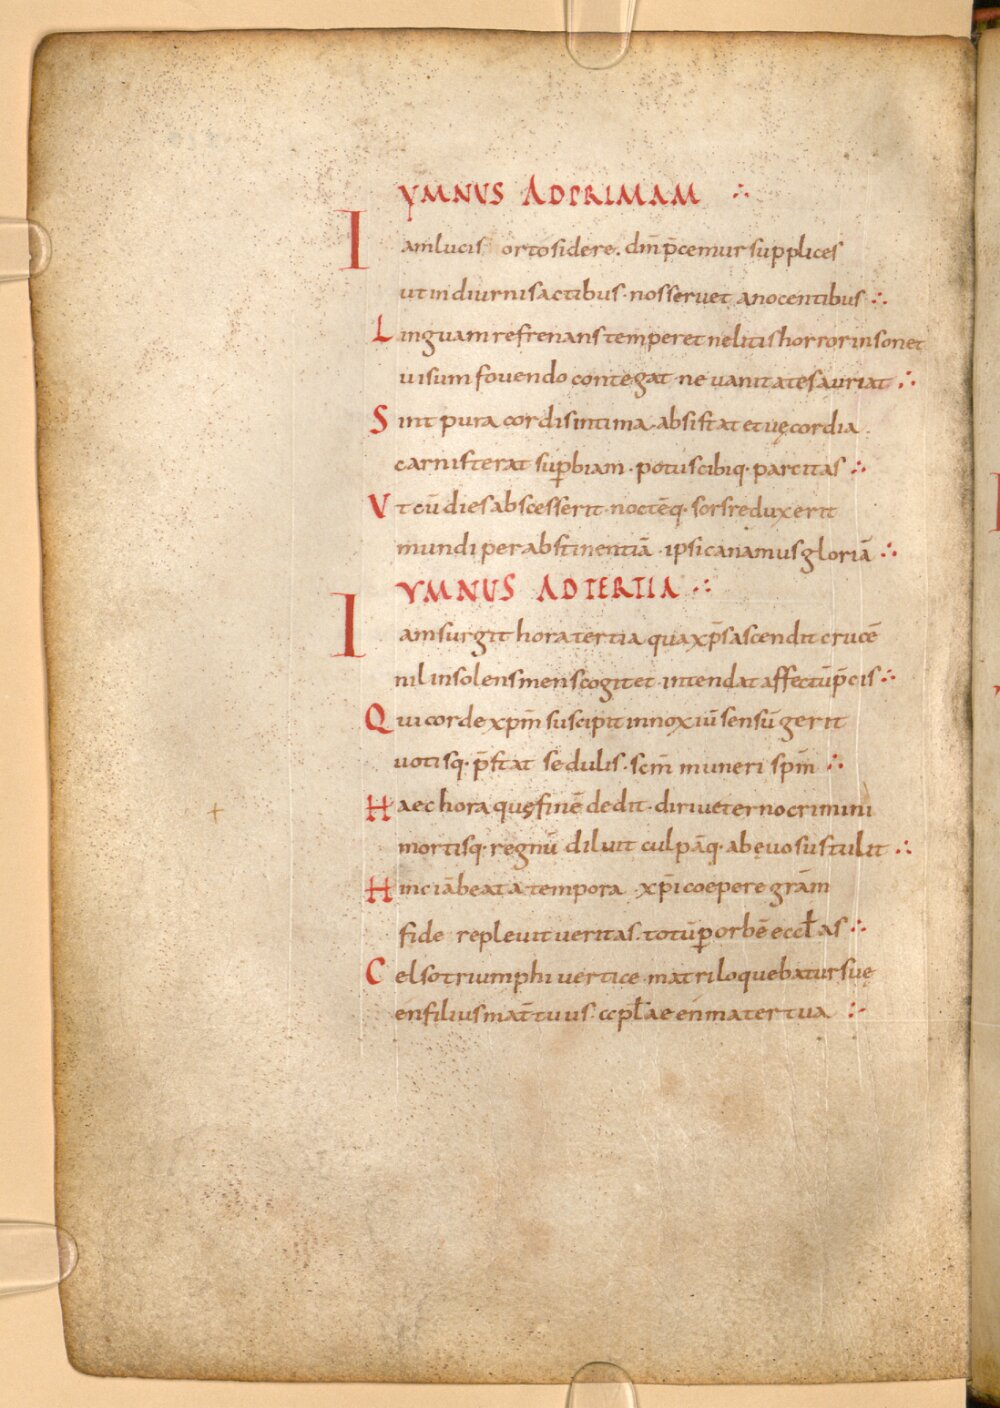 YMNUS AD PRIMAM ∴
Iam lucis orto sidere. dm̄ p̄cemur supplices
ut in diurnis actibus · nos servet a nocentibus ∴
Linguam refrenans temperet ne litis horror insonet
visum fovendo contegat · ne vanitates auriat ∴
Sint pura cordis intima · absistat et vęcordia .
carnis terat sup̱biam · potus cibiq· parcitas ∴
Vt cū dies abscesserit · noctēq· sors reduxerit
mundi per abstinentiā · ipsi canamus gloriā ∴
YMNUS AD TERTIA ∴
Iam surgit hora tertia qua xp̄s ascendit crucē
nil insolens mens cogitet · intendat affectū p̄cis ∴
Qui corde xpm̄ suscipit innoxiū sensū gerit
votisq· p̄stat sedulis · scm̄ muneri spm̄ ∴
Haec hora quę finē dedit · diri veterno crimini
mortisq· regnū diluit culpāq· ab ęvo sustulit ∴
Hinc iā beata tempora · xp̄i coepere grām
fide replevit veritas · totū p̱ orbē eccƚas ∴
Celso triumphi vertice · matri loquebatur suę
en filius mat̄ tuus · apƚae en mater tua ∴